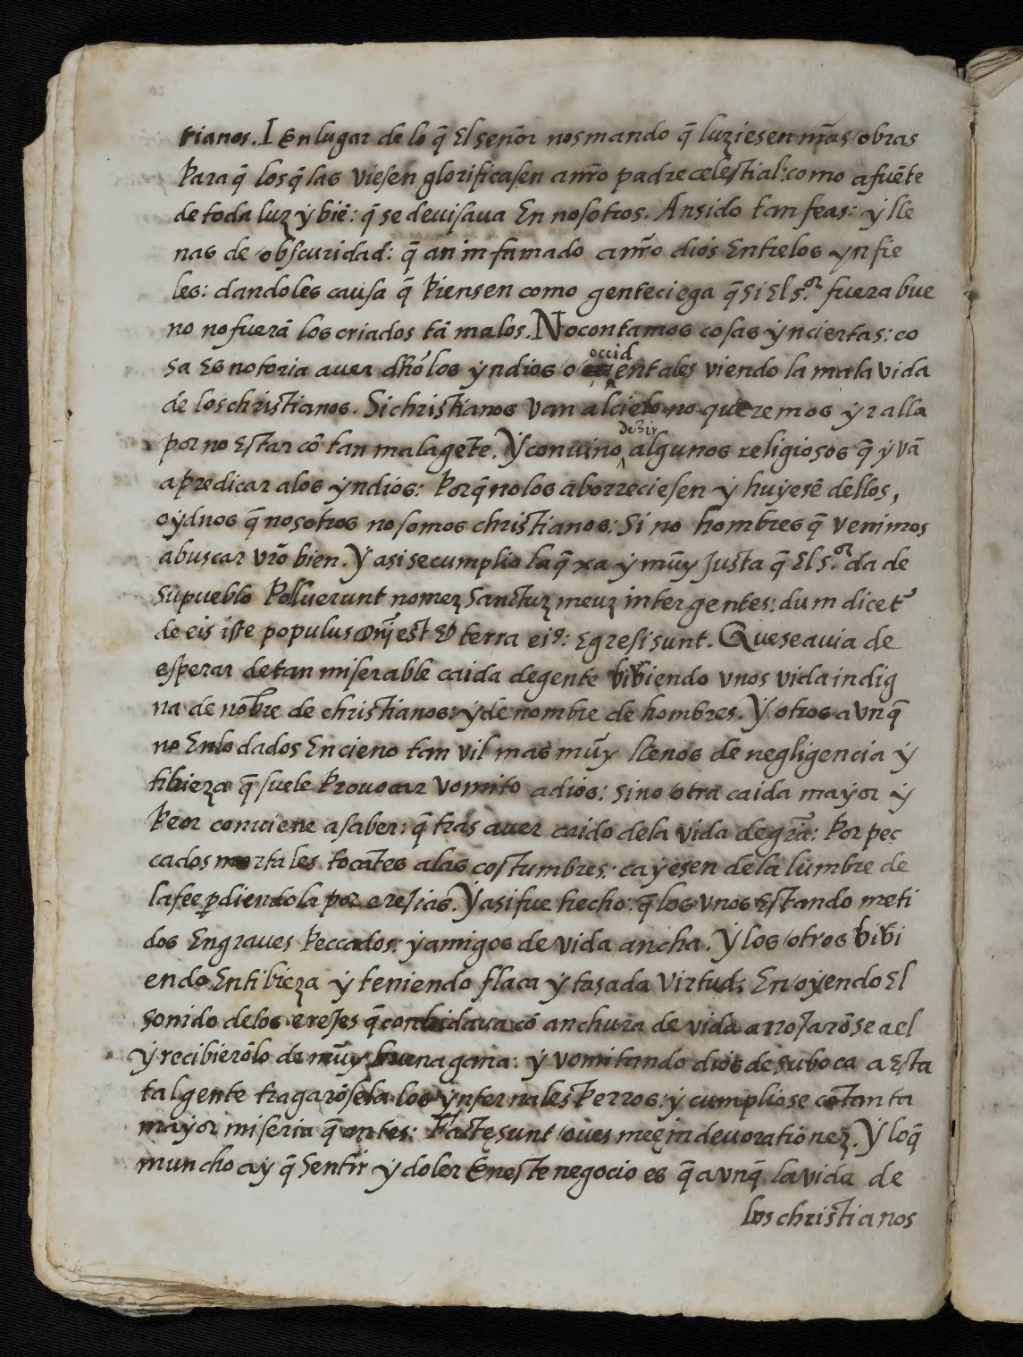 tianos. I En lugar de lo q̃ El señor nos mando q̃ luziesen nr̃as obras
Para q̃ los q̃ las viesen glorificasen a nr̃o padre celestial: como a fuẽte
de toda luz ẏ biẽ: q̃ se deuisaua En nosotros. An sido tan feas: ẏ lle
nas de obscuridad: q̃ an infamado a nr̃o dios Entre los ynfie
les: dandoles causa q̃ Piensen como gente ciega q̃ si El s.or fuera bue
no no fuerã los criados tã malos. No contamos cosas ẏnciertas: co
sa Es notoria auer dho los ẏndios occidentales viendo la mala vida
de los christianos. Si christianos van al cielo no queremos ẏr alla
por no Estar cõ tan mala gẽte. Y conuino dezir algunos religiosos q̃ ẏ vã
a predicar a los ẏndios: Porq̃ no los aborreciesen ẏ huẏesẽ dellos,
oẏdnos q̃ nosotros no somos christianos: Si no hombres q̃ venimos
a buscar vr̃o bien. Y asi se cumplio la q̃xa ẏ muẏ Justa q̃ El s.or da de
su pueblo Polluerunt nomeȝ Sanctuȝ meuȝ inter gentes: dum dicet̃
de eis iste populus dom̃j est Et terra ei9: Egresi sunt. Que se auia de
esperar de tan miserable caida de gente bibiendo vnos vida indig
na de nõbre de christianos: ẏ de nombre de hombres. Y otros avnq̃
no Enlodados En cieno tam vil mas muẏ llenos de negligencia ẏ
tibieza q̃ suele Prouocar vomito a dios: sino otra caida maẏor ẏ
Peor conuiene a saber: q̃ tras auer caido de la vida de gr̃a: Por pec
cados mortales tocãtes a las costumbres: caẏesen de la lumbre de
la fee perdiendola por erejias. Y asi fue hecho: q̃ los vnos Estando meti
dos En graues Peccados: ẏ amigos de vida ancha. Y los otros bibi
endo En tibieza ẏ teniendo flaca ẏ tasada virtud: En oẏendo El
sonido de los erejes q̃ combidaua cõ anchura de vida arrojarõse a el
ẏ recibierõlo de muẏ buena gana: ẏ vomitando dios de su boca a Esta
tal gente tragarõsela los ẏnfernales Perros: ẏ cumpliose cõ tanta
maẏor miseria q̃ antes: Factę sunt oues meę in deuorationeȝ. Y lo q̃
muncho aẏ q̃ sentir ẏ doler En este negocio es q̃ avnq̃ la vida de
los christianos